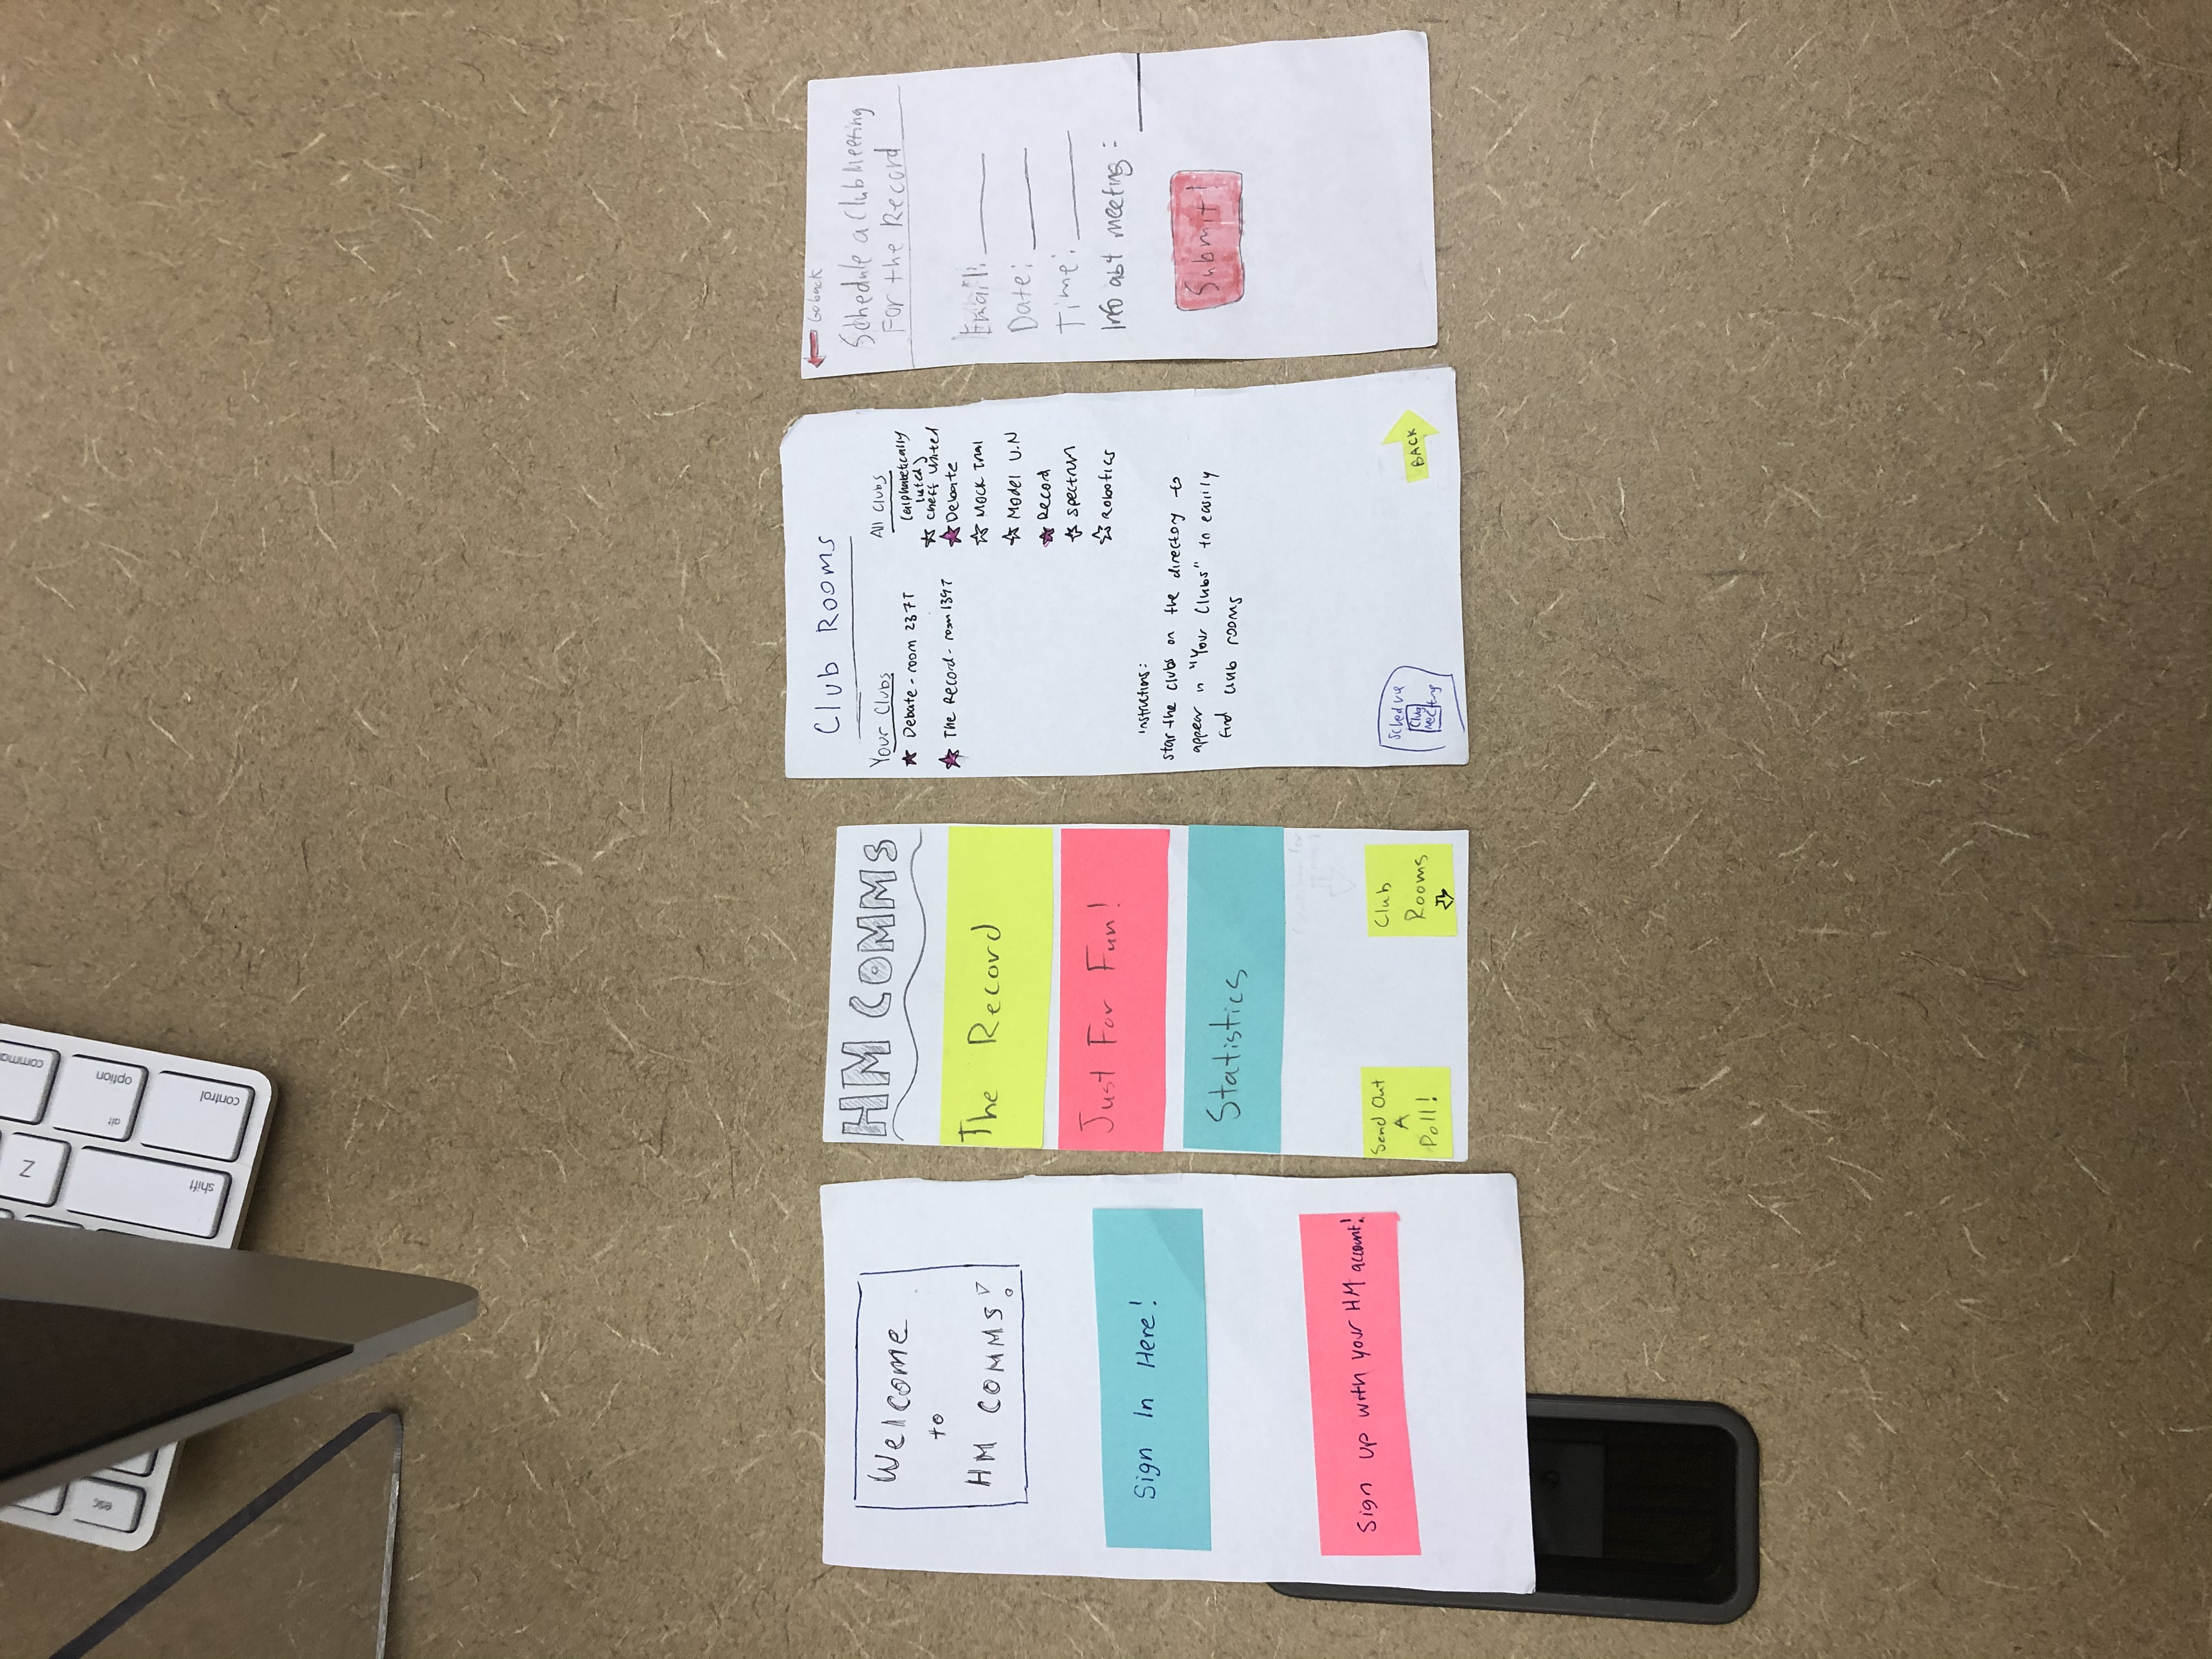 esc
Z
command
shift
alt
option
control
Welcome
to
HM COMMS!
Sign In Here!
Sign up with your HM account!
HM COMMS
The Record
Just For Fun!
Statistics
Send Out
A
Poll!
Club
Rooms
Club Rooms
Your Clubs
Debate - room 237T
The Record - room 139T
All Clubs
(alphabetically
listed)
Debate
Mock Trial
Model U.N
Record
Spectrum
Robotics
instructions:
star the clubs on the directory to
appear in "Your Clubs" to easily
find club rooms
Schedule
Club
Meeting
BACK
Go back
Schedule a Club Meeting
For the Record
Email:
Date:
Time:
Info abt meeting:
Submit!